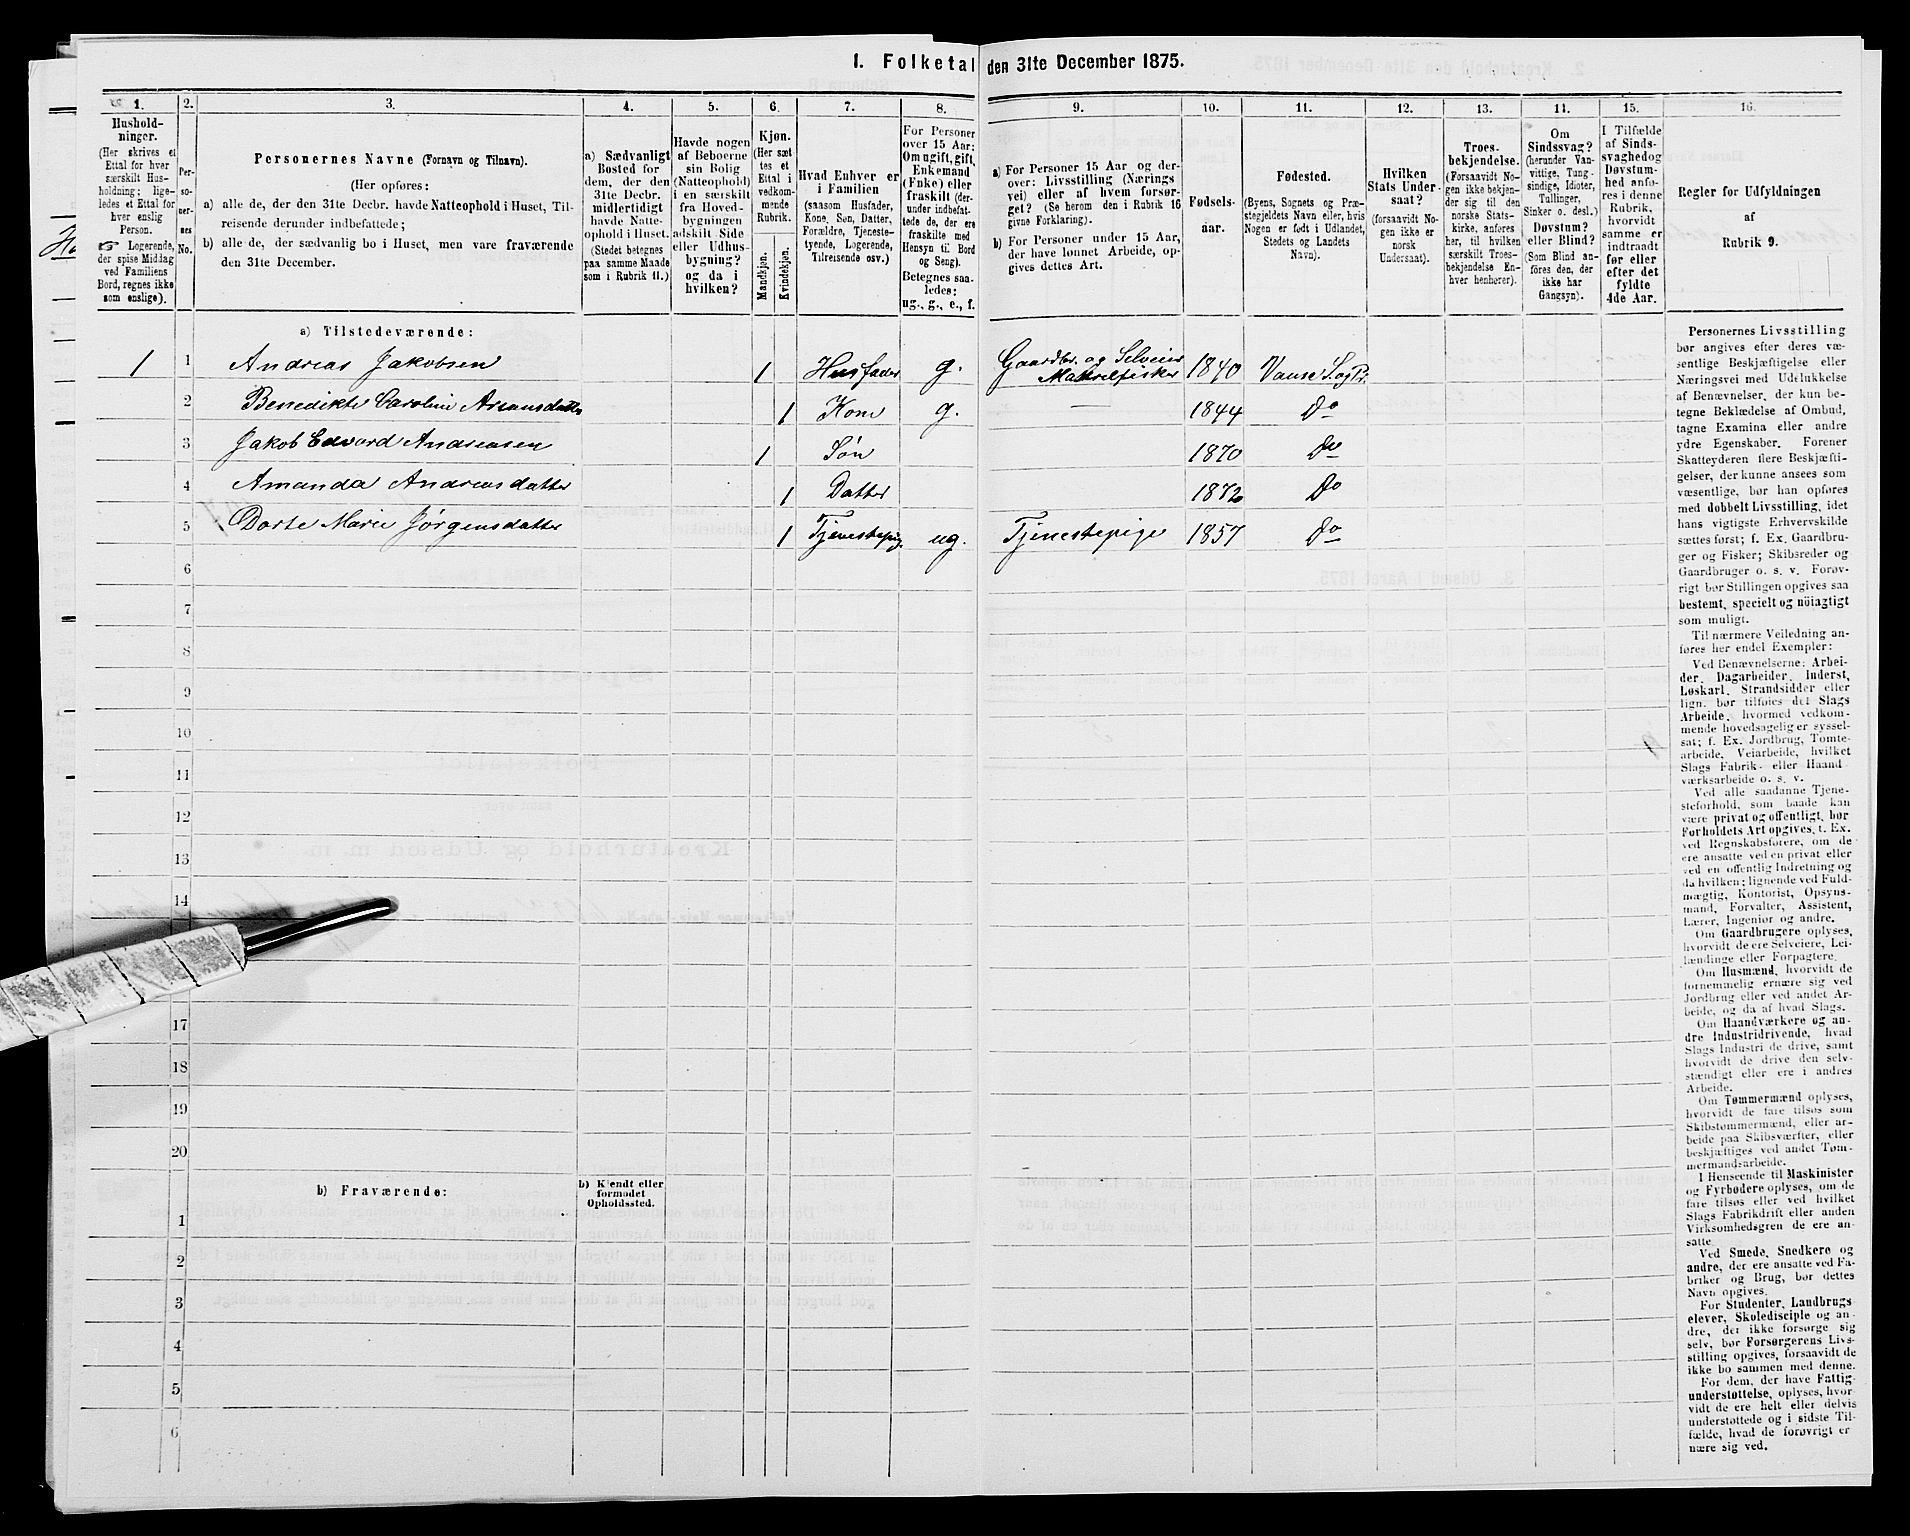 1. Folketal den 31te December 1875.
1. 2. 3. 4. 5. 6. 7. 8. 9. 10. 11. 12. 13. 14. 15. 16.
Hushold-
ninger.
(Her skrives et
Ettal for hver
særskilt Hus-
holdning; lige-
ledes et Ettal for
hver enslig
Person.
Logerende,
der spise Middag
ved Familiens
Bord, regnes ikke
som enslige).
Per-
so-
ner-
nes
No.
Personernes Navne (Fornavn og Tilnavn).
(Her opføres:
a) alle de, der den 31te Decbr. havde Natteophold i Huset, Til-
reisende derunder indbefattede;
b) alle de, der sædvanlig bo i Huset, men vare fraværende
den 31te December.
a) Sædvanligt
Bosted for
dem, der den
31te Decbr.
midlertidigt
havde Natte-
ophold i Huset.
(Stedet betegnes
paa samme Maade
som i Rubrik 11.)
Havde nogen
af Beboerne
sin Bolig
(Natteophold)
i en særskilt
fra Hoved-
bygningen
adskilt Side
eller Udhus-
bygning?
og da i
hvilken?
Kjøn.
(Her sæt-
tes et
Ettal i
vedkom-
mende
Rubrik.
Mandkjøn.
Kvindekjøn.
Hvad Enhver er
i Familien
(saasom Husfader,
Kone, Søn, Datter,
Forældre, Tjeneste-
tyende, Logerende,
Tilreisende osv.)
For Personer
over 15 Aar:
Om ugift, gift,
Enkemand
(Enke) eller
fraskilt (der-
under indbefat-
tede de, der ere
fraskilte med
Hensyn til Bord
og Seng).
Betegnes saa-
ledes:
ug., g., e., f.
a) For Personer 15 Aar og der-
over: Livsstilling (Nærings
vei) eller af hvem forsør-
get? (Se herom den i Rubrik 16
givne Forklaring).
b) For Personer under 15 Aar,
der have lønnet Arbeide, op-
gives dettes Art.
Fødsels-
aar.
Fødested.
(Byens, Sognets og Præ-
stegjeldets Navn eller, hvis
Nogen er født i Udlandet,
Stedets og Landets
Navn).
Hvilken
Stats Under-
saat?
(forsaavidt No-
gen ikke er
norsk
Undersaat).
Troes-
bekjendelse.
(Forsaavidt No-
gen ikke bekjen-
der sig til den
norske Stats-
kirke, anføres
her, til hvilken
særskilt Troes-
bekjendelse En-
hver henhører).
Om
Sindssvag?
(herunder Van-
vittige, Tung-
sindige, Idioter,
Tullinger,
Sinker o. desl.)
Døvstum?
eller Blind?
(Som Blind an-
føres den, der
ikke har
Gangsyn).
I Tilfælde
af Sinds-
svaghed og
Døvstum-
hed anfø-
res i denne
Rubrik,
hvorvidt
samme er
indtraadt
før eller
efter det
fyldte
4de Aar.
Regler for Udfyldningen
af
Rubrik 9.
a) Tilstedeværende:
1 1 Andreas Jakobsen 1 Husfader g. Gaardbr. og Selveier Makrelfisker 1840 Vanse S. og Pr.
2 Benedikte Caroline 1 Kone g. — 1844 Do
3 Jakob Edvard Andreasen 1 Søn 1870 Do
4 Amanda Andreasdatter 1 Datter 1872 Do
5 Dorte Marie Jørgensdatter 1 Tjenestepig. ug. Tjenestepige 1857 Do
6
7
8
9
10
11
12
13
14
17
18
19
20
b) Fraværende:
b) Kjendt eller
formodet
Opholdssted.
1
2
3
4
5
6
Personernes Livsstilling
bør angives efter deres væ-
sentlige Beskjæftigelse eller
Næringsvei med Udelukkelse
af Benævnelser, der kun be-
tegne Beklædelse af Ombud,
tagne Examina eller andre
ydre Egenskaber. Forener
Skatteyderen flere Beskjæfti-
gelser, der kunne ansees som
væsentlige, bør han opføres
med dobbelt Livsstilling, idet
hans vigtigste Erhvervskilde
sættes først; f. Ex. Gaardbru-
ger og Fisker; Skibsreder og
Gaardbruger o. s. v. Forøv-
rigt bør Stillingen opgives saa
bestemt, specielt og nöiagtigt
som muligt.
Til nærmere Veiledning an-
føres her endel Exempler:
Ved Benævnelserne: Arbei-
der, Dagarbeider, Inderst,
Løskarl, Strandsidder eller
lign. bør tilføies det Slags
Arbeide, hvormed vedkom-
mende hovedsagelig er syssel-
sat; f. Ex. Jordbrug, Tomte-
arbeide, Veiarbeide, hvilket
Slags Fabrik- eller Haand-
værksarbeide o. s. v.
Ved alle saadanne Tjene-
steforhold, som baade kan
være privat og offentligt, bør
Forholdets Art opgives, t. Ex.
ved Regnskabsførere, om de
ere ansatte ved en privat eller
ved en offentlig Indretning og
da hvilken; lignende ved Fuld-
mægtig, Kontorist, Opsyns-
mand, Forvalter, Assistent,
Lærer, Ingeniør og andre.
Om Gaardbrugere oplyses,
hvorvidt de ere Selveiere, Lei-
lændinge eller Forpagtere.
Om Husmænd, hvorvidt de
fornemmelig ernære sig ved
Jordbrug eller ved andet Ar-
beide, og da af hvad Slags.
Om Haandværkere og an-
dre Industridrivende, hvad
Slags Industri de drive, samt
hvorvidt de drive den selv-
stændigt eller ere i andres
Arbeide.
Om Tømmermænd oplyses,
hvorvidt de fare tilsøs som
Skibstømmermænd, eller ar-
beide paa Skibsværfter, eller
beskjæftiges ved andet Tøm-
mermandsarbeide.
I Henseende til Maskinister
og Fyrbødere oplyses, om de
fare tilsøs eller ved hvilket
Slags Fabrikdrift eller anden
Virksomhedsgren de ere an-
satte.
Ved Smede, Snedkere og
andre, der ere ansatte ved Fa-
briker og Brug, bør dettes
Navn opgives.
For Studenter, Landbrugs-
elever, Skoledisciple og an-
dre, der ikke forsørge sig
selv, bør Forsørgerens Livs-
stilling opgives, forsaavidt de
ikke bo sammen med denne.
For dem, der have Fattig-
understøttelse, oplyses, hvor-
vidt de ere helt eller delvis
understøttede og i sidste Til-
fælde, hvad de forøvrigt er-
nære sig ved.